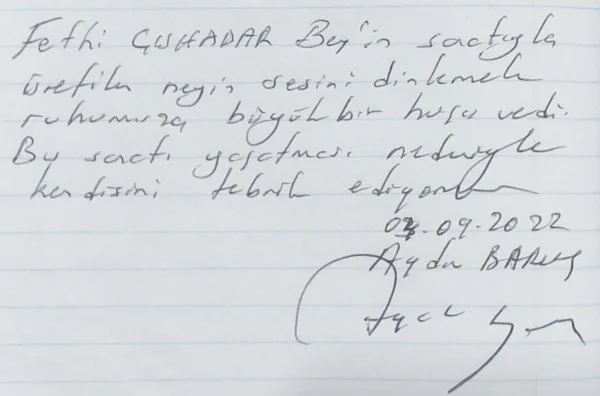 Fethi ÇUHADAR Bey'in sanatıyla
üretilen neyin sesini dinlemek
ruhumuza büyük bir huşu verdi.
Bu sanatı yaşatması nedeniyle
kendisini tebrik ediyorum
-09-2022
Ayda